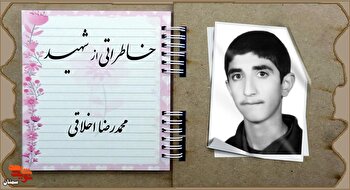 خاطراتی از شهید
محمدرضا اخلاقی
سمنان